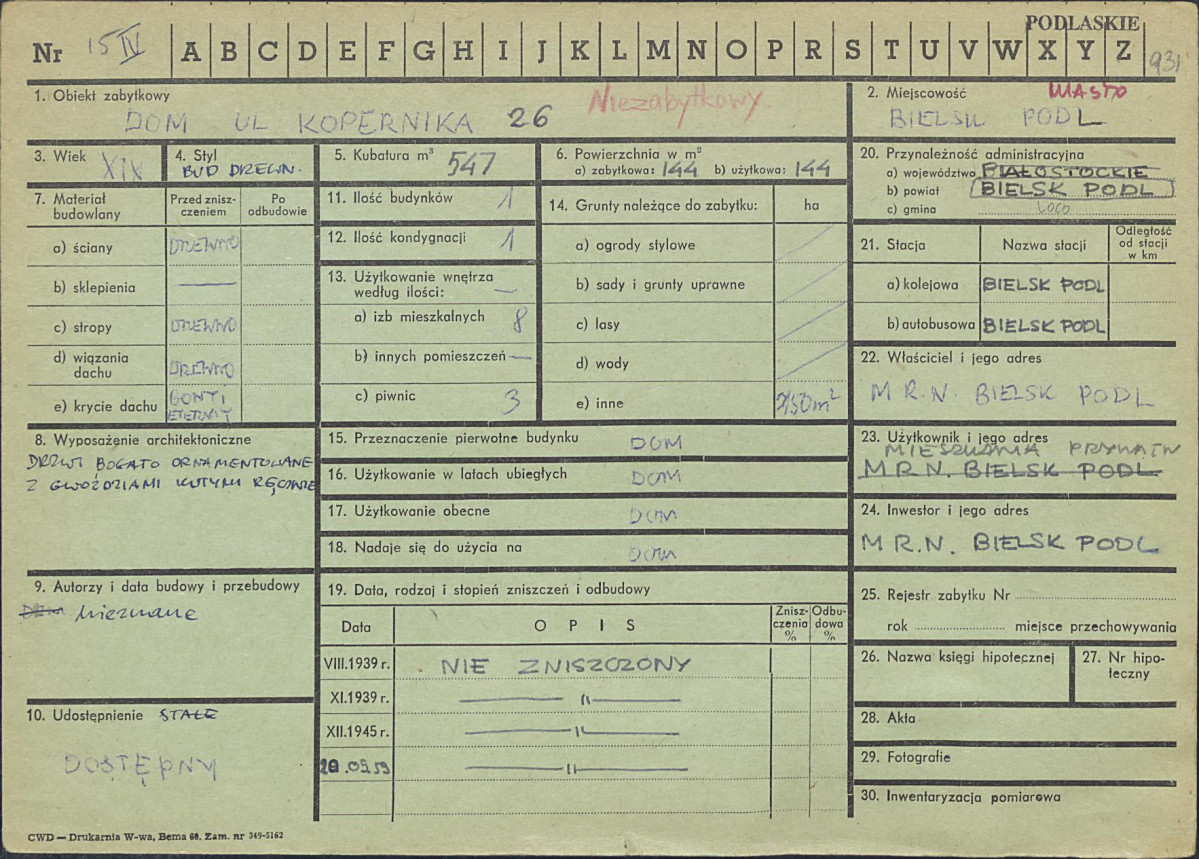 PODLASKIE
Nr 15 IV A B C D E F G H I J K L M N O P R S T U V W X Y Z 931
1. Obiekt zabytkowy
Niezabytkowy.
DOM UL KOPERNIKA 26
2. Miejscowość MIASTO
BIELSK PODL
3. Wiek XIX
4. Styl
BUD DREWN.
5. Kubatura m³ 547
6. Powierzchnia w m²
a) zabytkowa: 144 b) użytkowa: 144
7. Materiał budowlany
Przed zniszczeniem
Po odbudowie
a) ściany DRZEWNO
b) sklepienia —
c) stropy DRZEWNO
d) wiązania dachu DRZEWNO
e) krycie dachu GONTI ETERNIT
8. Wyposażenie architektoniczne
DRZWI BOGATO ORNAMENTOWANE
Z GWOŹDZIAMI KUTYMI RĘCZNIE
9. Autorzy i data budowy i przebudowy
nieznane
10. Udostępnienie STAŁE
DOSTĘPNY
11. Ilość budynków 1
12. Ilość kondygnacji 1
13. Użytkowanie wnętrza
według ilości: —
a) izb mieszkalnych 8
b) innych pomieszczeń —
c) piwnic 3
14. Grunty należące do zabytku: ha
a) ogrody stylowe
b) sady i grunty uprawne
c) lasy
d) wody
e) inne
15. Przeznaczenie pierwotne budynku DOM
16. Użytkowanie w latach ubiegłych DOM
17. Użytkowanie obecne DOM
18. Nadaje się do użycia na DOM
19. Data, rodzaj i stopień zniszczeń i odbudowy
Data OPIS Zniszczenia % Odbudowa %
VIII.1939 r. NIE ZNISZCZONY
XI.1939 r. — 〃 —
XII.1945 r. — 〃 —
20.09.59 — 〃 —
20. Przynależność administracyjna
a) województwo BIAŁOSTOCKIE
b) powiat BIELSK PODL
c) gmina loco
21. Stacja Nazwa stacji Odległość od stacji w km
a) kolejowa BIELSK PODL
b) autobusowa BIELSK PODL
22. Właściciel i jego adres
M R.N. BIELSK PODL
23. Użytkownik i jego adres
MIESZKANIA PRYWATN
M.R.N. BIELSK PODL
24. Inwestor i jego adres
M R.N. BIELSK PODL
25. Rejestr zabytku Nr
rok miejsce przechowywania
26. Nazwa księgi hipotecznej
27. Nr hipoteczny
28. Akta
29. Fotografie
30. Inwentaryzacja pomiarowa
CWD — Drukarnia W-wa, Bema 60. Zam. nr 349-5162